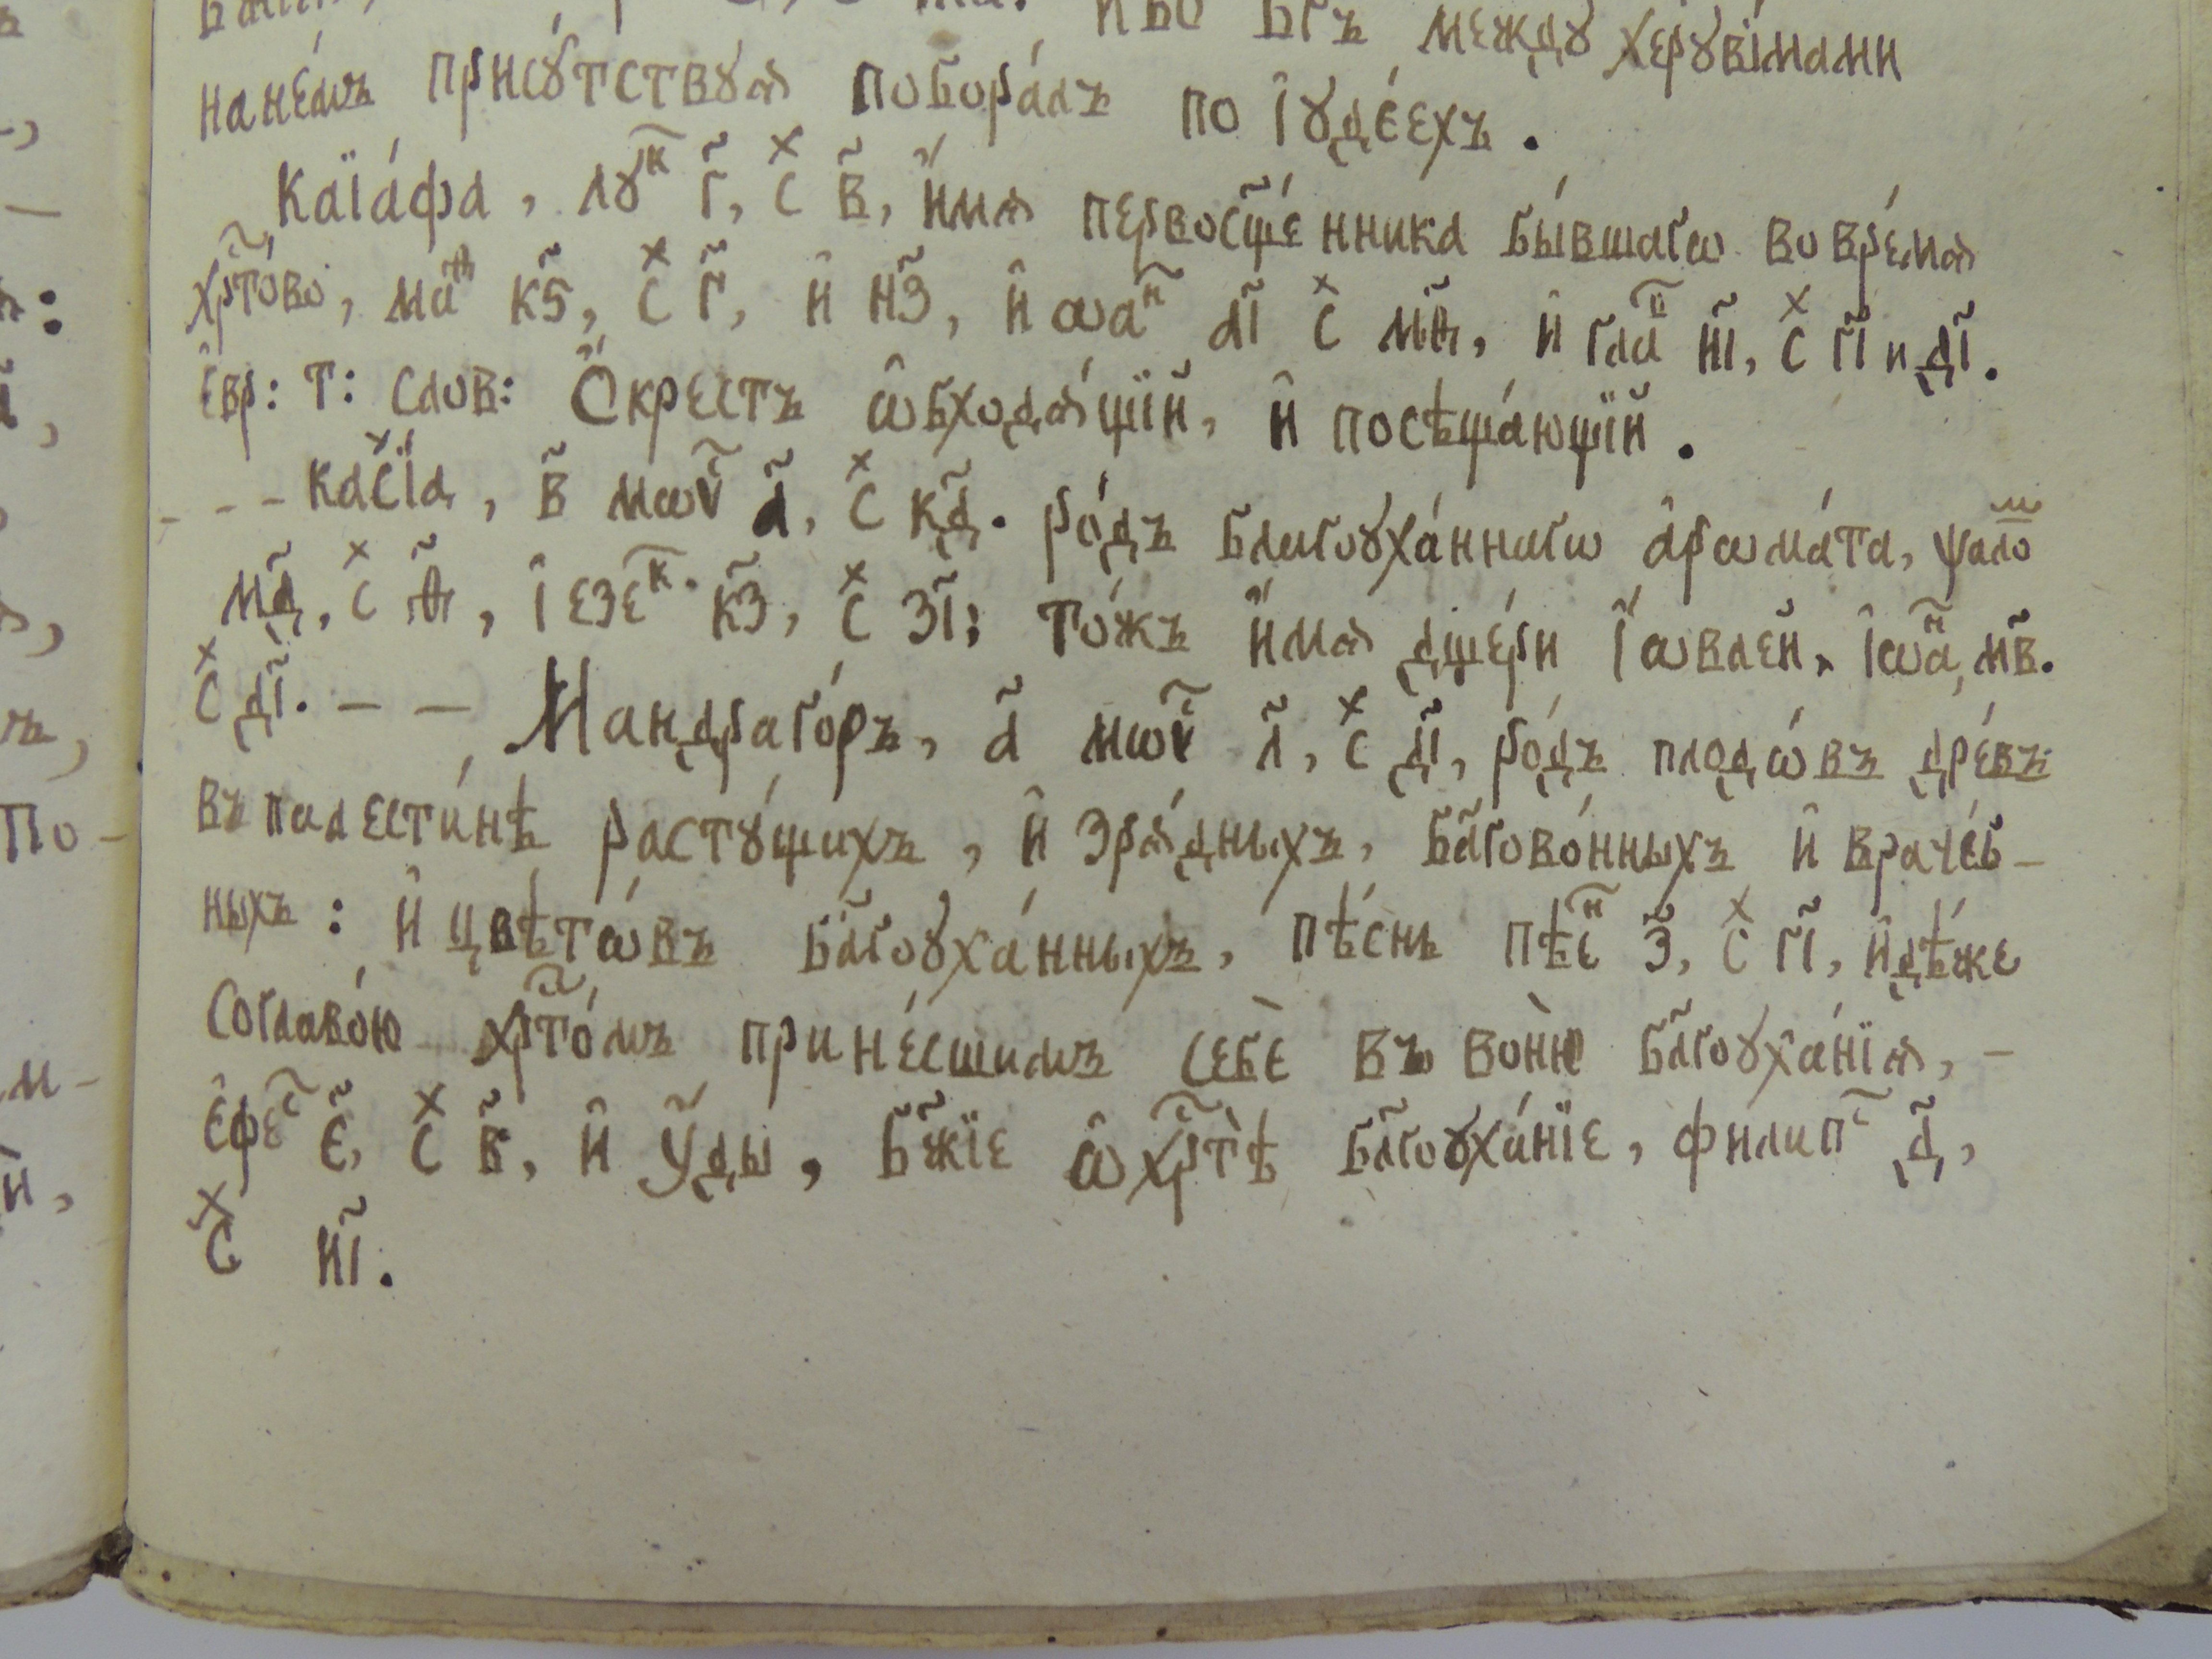 между херувімами
на не́мъ прису́тствуѧ побора́лъ по і҆уде́ехъ .
Каїа́фа , луⷦ҇ г҃, сⷯ в҃, и҆́мѧ первосщ҃е́нника бы́вшагѡ во вре́мѧ
хрⷭ҇то́во, маⷴ кѕ҃, сⷯ г҃, и҆ нз҃, и҆ ѡаⷩ҇ аі҃ сⷯ мѳ҃, и҆ глаⷡ҇ ні҃, сⷯ гі҃ и ді҃.
є҆вр: т: слов: Ѻ҆́крестъ ѡ҆бходѧ́щїй, и҆ посѣща́ющїй .
- - - ка́сїа, в҃ мѡѵⷭ҇ а҃, сⷯ кд҃. ро́дъ благоуха́ннагѡ а҆рѡма́та, ѱалоⷨ
мд҃, сⷯ ѳ҃, і҆езеⷦ҇. кз҃, сⷯ зі҃; то́жъ и҆́мѧ дще́ри і҆́ѡвлей, і҆ѡаⷩ҇, мв҃.
сⷯ ді҃. — — Мандраго́ръ, а҃ мѡѵⷭ҇ л҃, сⷯ ді҃, ро́дъ плодѡ́въ дре́въ
въ палести́нѣ расту́щихъ , и҆ зрѧ́дныхъ, бл҃гово́нныхъ и҆ враче́б-
ныхъ : и҆ цвѣтѡ́въ бл҃гоуха́нныхъ, пѣ́снь пѣеⷩ҇ з҃, сⷯ гі҃, и҆дѣ́же
со главо́ю хрⷭ҇то́мъ прине́сшимъ себѐ въ воню̀ бл҃гоуха́нїѧ, -
є҆феⷭ҇ є҃, сⷯ в҃, и҆ у҆́ды , бж҃їе ѡ҆ хрⷭ҇тѣ̀ бл҃гоуха́нїе, филипⷭ҇ д҃,
сⷯ иі҃.